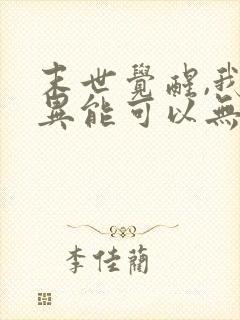 末世覺醒,我
異能可以無
李佳蘭